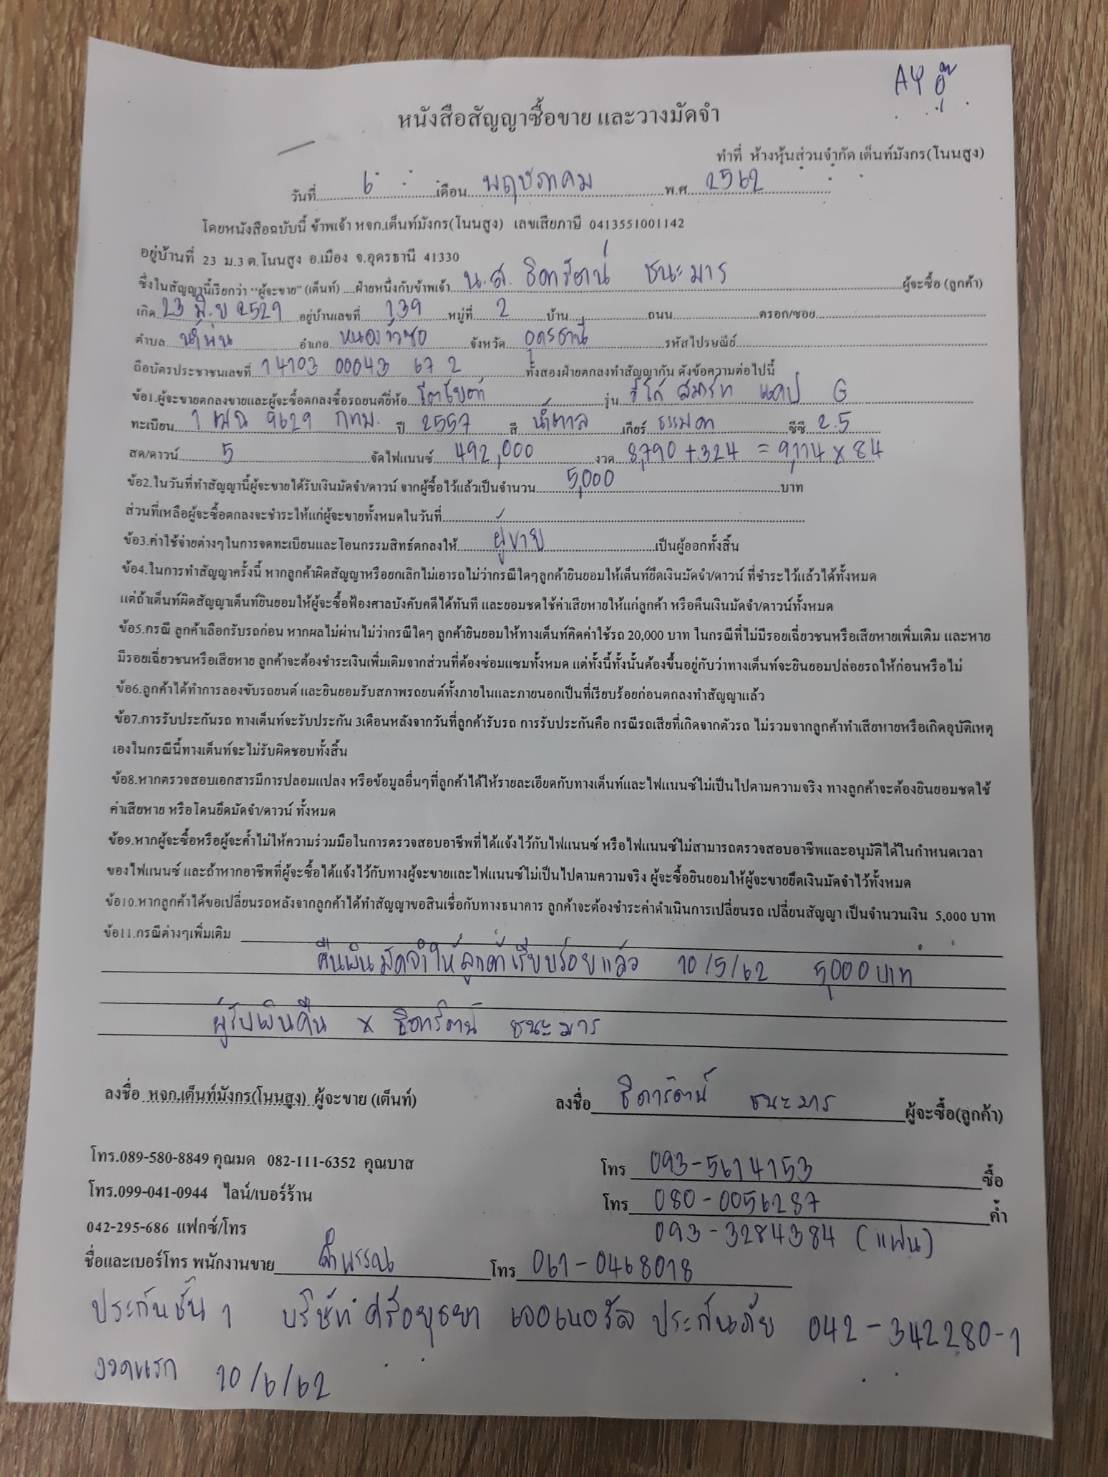 AY อู๊
หนังสือสัญญาซื้อขาย และวางมัดจำ
ทำที่ ห้างหุ้นส่วนจำกัด เต็นท์มังกร(โนนสูง)
วันที่ 6 เดือน พฤษภาคม พ.ศ 2562
โดยหนังสือฉบับนี้ ข้าพเจ้า หจก.เต็นท์มังกร(โนนสูง) เลขเสียภาษี 0413551001142
อยู่บ้านที่ 23 ม.3 ต.โนนสูง อ.เมือง จ.อุดรธานี 41330
ซึ่งในสัญญานี้เรียกว่า "ผู้จะขาย" (เต็นท์) ฝ่ายหนึ่งกับข้าพเจ้า น.ส. ธิดารัตน์ ชนะมาร ผู้จะซื้อ (ลูกค้า)
เกิด 23 มิ.ย 2529 อยู่บ้านเลขที่ 139 หมู่ที่ 2 บ้าน ถนน ตรอก/ซอย
ตำบล น้ำพ่น อำเภอ หนองวัวซอ จังหวัด อุดรธานี รหัสไปรษณีย์
ถือบัตรประชาชนเลขที่ 14103 00043 67 2 ทั้งสองฝ่ายตกลงทำสัญญากัน ดังข้อความต่อไปนี้
ข้อ1.ผู้จะขายตกลงขายและผู้จะซื้อตกลงซื้อรถยนต์ยี่ห้อ โตโยต้า รุ่น วีโก้ สมาร์ท แคป G
ทะเบียน 1 ฒฉ 9629 กทม. ปี 2557 สี น้ำตาล เกียร์ ธรรมดา ซีซี 2.5
สด/ดาวน์ 5 จัดไฟแนนซ์ 492,000 งวด 8,790 + 324 = 9,114 x 84
ข้อ2.ในวันที่ทำสัญญานี้ผู้จะขายได้รับเงินมัดจำ/ดาวน์ จากผู้ซื้อไว้แล้วเป็นจำนวน 5,000 บาท
ส่วนที่เหลือผู้จะซื้อตกลงจะชำระให้แก่ผู้จะขายทั้งหมดในวันที่
ข้อ3.ค่าใช้จ่ายต่างๆในการจดทะเบียนและโอนกรรมสิทธ์ตกลงให้ ผู้ขาย เป็นผู้ออกทั้งสิ้น
ข้อ4.ในการทำสัญญาครั้งนี้ หากลูกค้าผิดสัญญาหรือยกเลิกไม่เอารถไม่ว่ากรณีใดๆลูกค้ายินยอมให้เต็นท์ยึดเงินมัดจำ/ดาวน์ ที่ชำระไว้แล้วได้ทั้งหมด
แต่ถ้าเต็นท์ผิดสัญญาเต็นท์ยินยอมให้ผู้จะซื้อฟ้องศาลบังคับคดีได้ทันที และยอมชดใช้ค่าเสียหายให้แก่ลูกค้า หรือคืนเงินมัดจำ/ดาวน์ทั้งหมด
ข้อ5.กรณี ลูกค้าเลือกรับรถก่อน หากผลไม่ผ่านไม่ว่ากรณีใดๆ ลูกค้ายินยอมให้ทางเต็นท์คิดค่าใช้รถ 20,000 บาท ในกรณีที่ไม่มีรอยเฉี่ยวชนหรือเสียหายเพิ่มเติม และหาย
มีรอยเฉี่ยวชนหรือเสียหาย ลูกค้าจะต้องชำระเงินเพิ่มเติมจากส่วนที่ต้องซ่อมแซมทั้งหมด แต่ทั้งนี้ทั้งนั้นต้องขึ้นอยู่กับว่าทางเต็นท์จะยินยอมปล่อยรถให้ก่อนหรือไม่
ข้อ6.ลูกค้าได้ทำการลองขับรถยนต์ และยินยอมรับสภาพรถยนต์ทั้งภายในและภายนอกเป็นที่เรียบร้อยก่อนตกลงทำสัญญาแล้ว
ข้อ7.การรับประกันรถ ทางเต็นท์จะรับประกัน 3เดือนหลังจากวันที่ลูกค้ารับรถ การรับประกันคือ กรณีรถเสียที่เกิดจากตัวรถ ไม่รวมจากลูกค้าทำเสียหายหรือเกิดอุบัติเหตุ
เองในกรณีนี้ทางเต็นท์จะไม่รับผิดชอบทั้งสิ้น
ข้อ8.หากตรวจสอบเอกสารมีการปลอมแปลง หรือข้อมูลอื่นๆที่ลูกค้าได้ให้รายละเอียดกับทางเต็นท์และไฟแนนซ์ไม่เป็นไปตามความจริง ทางลูกค้าจะต้องยินยอมชดใช้
ค่าเสียหาย หรือโดนยึดมัดจำ/ดาวน์ ทั้งหมด
ข้อ9.หากผู้จะซื้อหรือผู้จะค้ำไม่ให้ความร่วมมือในการตรวจสอบอาชีพที่ได้แจ้งไว้กับไฟแนนซ์ หรือไฟแนนซ์ไม่สามารถตรวจสอบอาชีพและอนุมัติได้ในกำหนดเวลา
ของไฟแนนซ์ และถ้าหากอาชีพที่ผู้จะซื้อได้แจ้งไว้กับทางผู้จะขายและไฟแนนซ์ไม่เป็นไปตามความจริง ผู้จะซื้อยินยอมให้ผู้จะขายยึดเงินมัดจำไว้ทั้งหมด
ข้อ10.หากลูกค้าได้ขอเปลี่ยนรถหลังจากลูกค้าได้ทำสัญญาขอสินเชื่อกับทางธนาคาร ลูกค้าจะต้องชำระค่าดำเนินการเปลี่ยนรถ เปลี่ยนสัญญา เป็นจำนวนเงิน 5,000 บาท
ข้อ11.กรณีต่างๆเพิ่มเติม
คืนเงินมัดจำให้ลูกค้าเรียบร้อยแล้ว 10/5/62 5,000 บาท
ผู้รับเงินคืน x ธิดารัตน์ ชนะมาร
ลงชื่อ หจก.เต็นท์มังกร(โนนสูง) ผู้จะขาย (เต็นท์)
ลงชื่อ ธิดารัตน์ ชนะมาร ผู้จะซื้อ(ลูกค้า)
โทร.089-580-8849 คุณมด 082-111-6352 คุณบาส
โทร 093-5614153 ซื้อ
โทร.099-041-0944 ไลน์/เบอร์ร้าน
โทร 080-0056287 ค้ำ
042-295-686 แฟกซ์/โทร
093-3284384 (แฟน)
ชื่อและเบอร์โทร พนักงานขาย โทร 061-0468018
ประกันชั้น 1 บริษัท ศรีอยุธยา เจอเนอรัล ประกันภัย 042-342280-1
งวดแรก 10/6/62